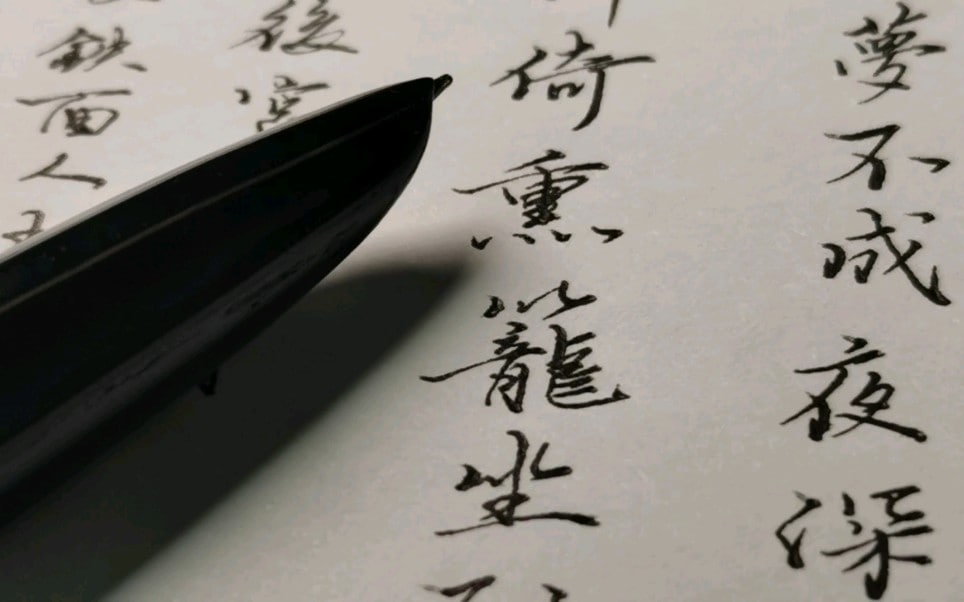 夢不成夜深
倚熏籠坐
後宮
鉄面人